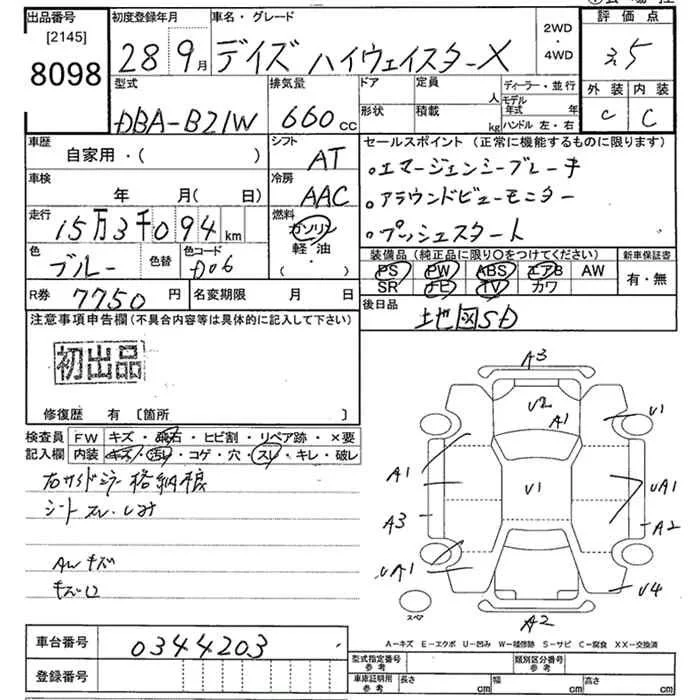 出品番号
[2145]
8098
初度登録年月
28 9月
車名・グレード
デイズ ハイウェイスターX
2WD
・
4WD
評価点
3.5
外装 内装
C C
型式
DBA-B21W
排気量
660cc
ドア
形状
定員
人
積載
kg
ディーラー・並行
モデル年式 年
ハンドル 左・右
車歴
自家用・( )
シフト
AT
セールスポイント（正常に機能するものに限ります）
・エマージェンシーブレーキ
・アラウンドビューモニター
・プッシュスタート
車検
年 月( 日)
冷房
AAC
走行
15万3千094km
燃料
ガソリン
軽・油
・( )
色
ブルー
色替
色コード
D06
装備品（純正品に限り○をつけてください）
PS PW ABS エアB AW
SR ナビ TV カワ
新車保証書
有・無
R券
7750円
名変期限 月 日
後日品
地図SD
注意事項申告欄（不具合内容等は具体的に記入して下さい）
初出品
修復歴 有〔箇所 〕
検査員記入欄
FW キズ・飛石・ヒビ割・リペア跡・×要
内装 キズ・汚レ・コゲ・穴・スレ・キレ・破レ
シート スレ・しみ
AWキズ
A3
U2
A1
U1
A1
U1
UA1
A3
A2
UA1
U4
スペア
A2
A－キズ E－エクボ U－凹み W－補修跡 S－サビ C－腐食 XX－交換済
車台番号
0344203
登録番号
型式指定番号
参考
類別区分番号
参考
車庫証明用
参考
長さ cm
幅 cm
高さ cm